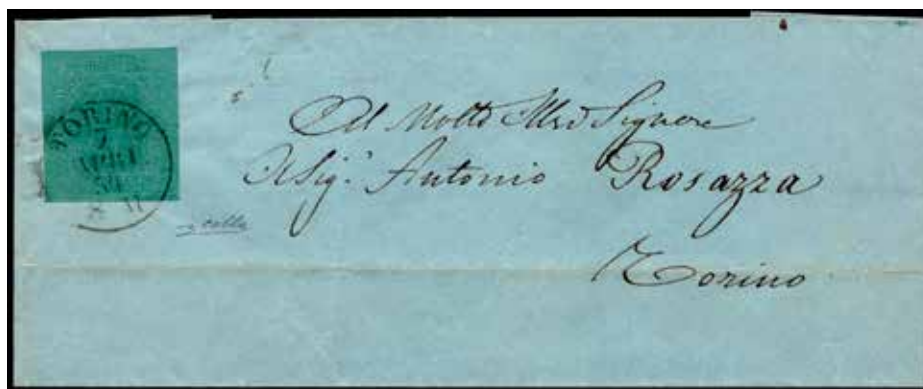 TORINO
7
APRI
Al Molto Illre Signore
Il Sig.r Antonio Rosazza
Torino